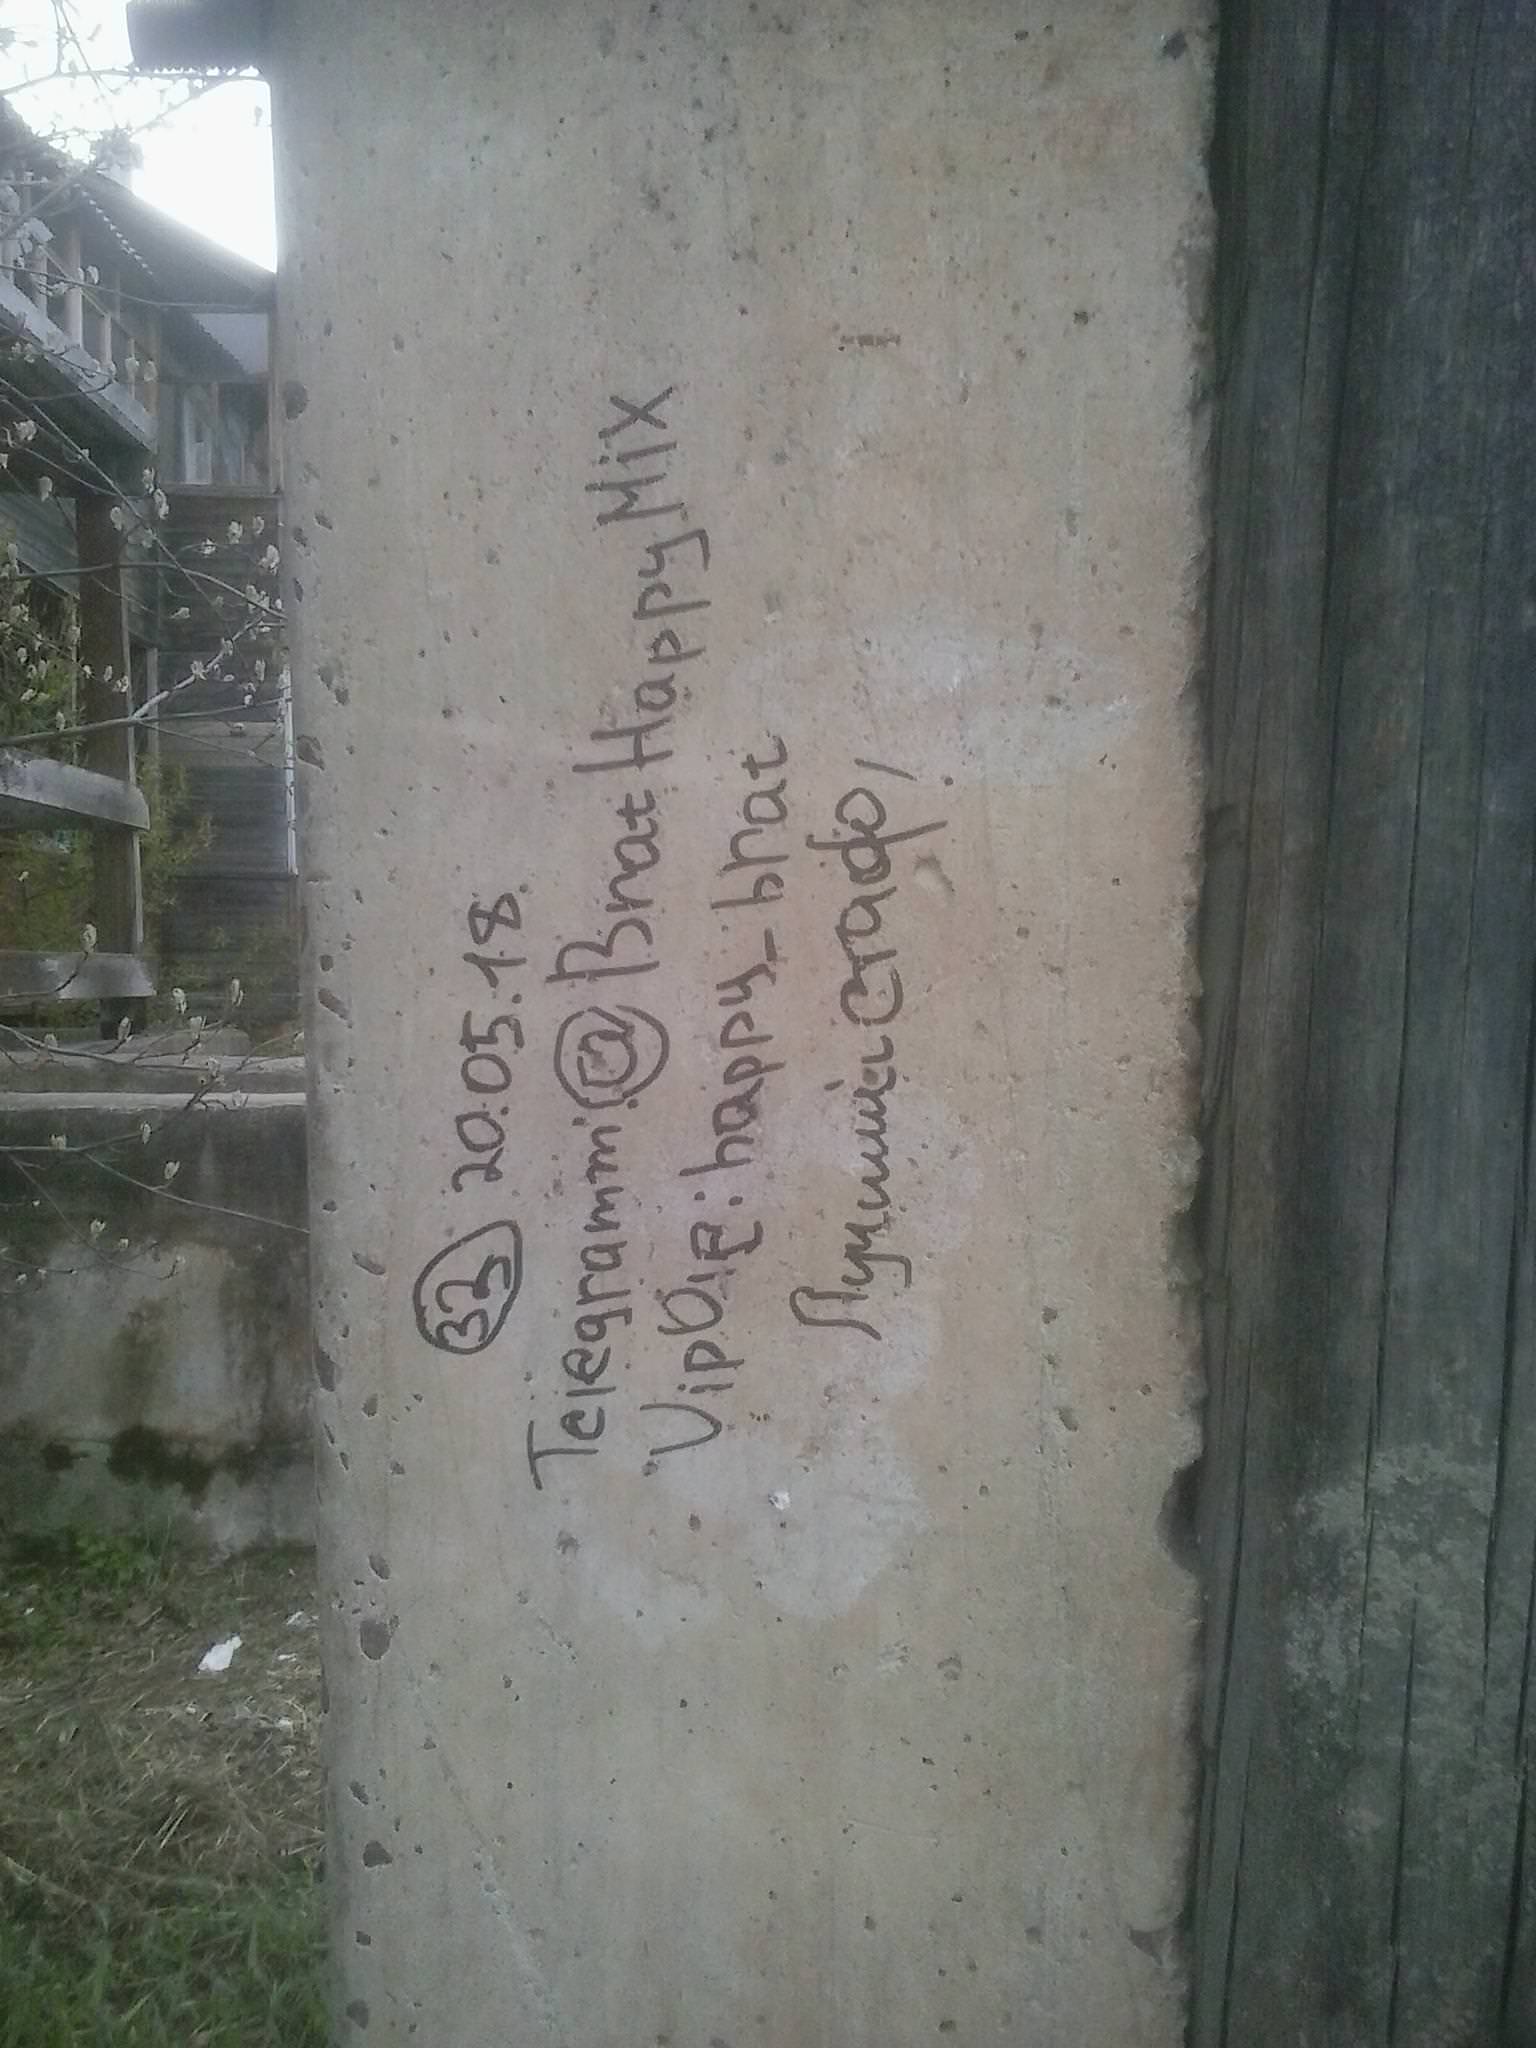 33 20.05.18.
Telegramm:@BratHappyMix
VipOle:happy_brat
Лучший Стафф!